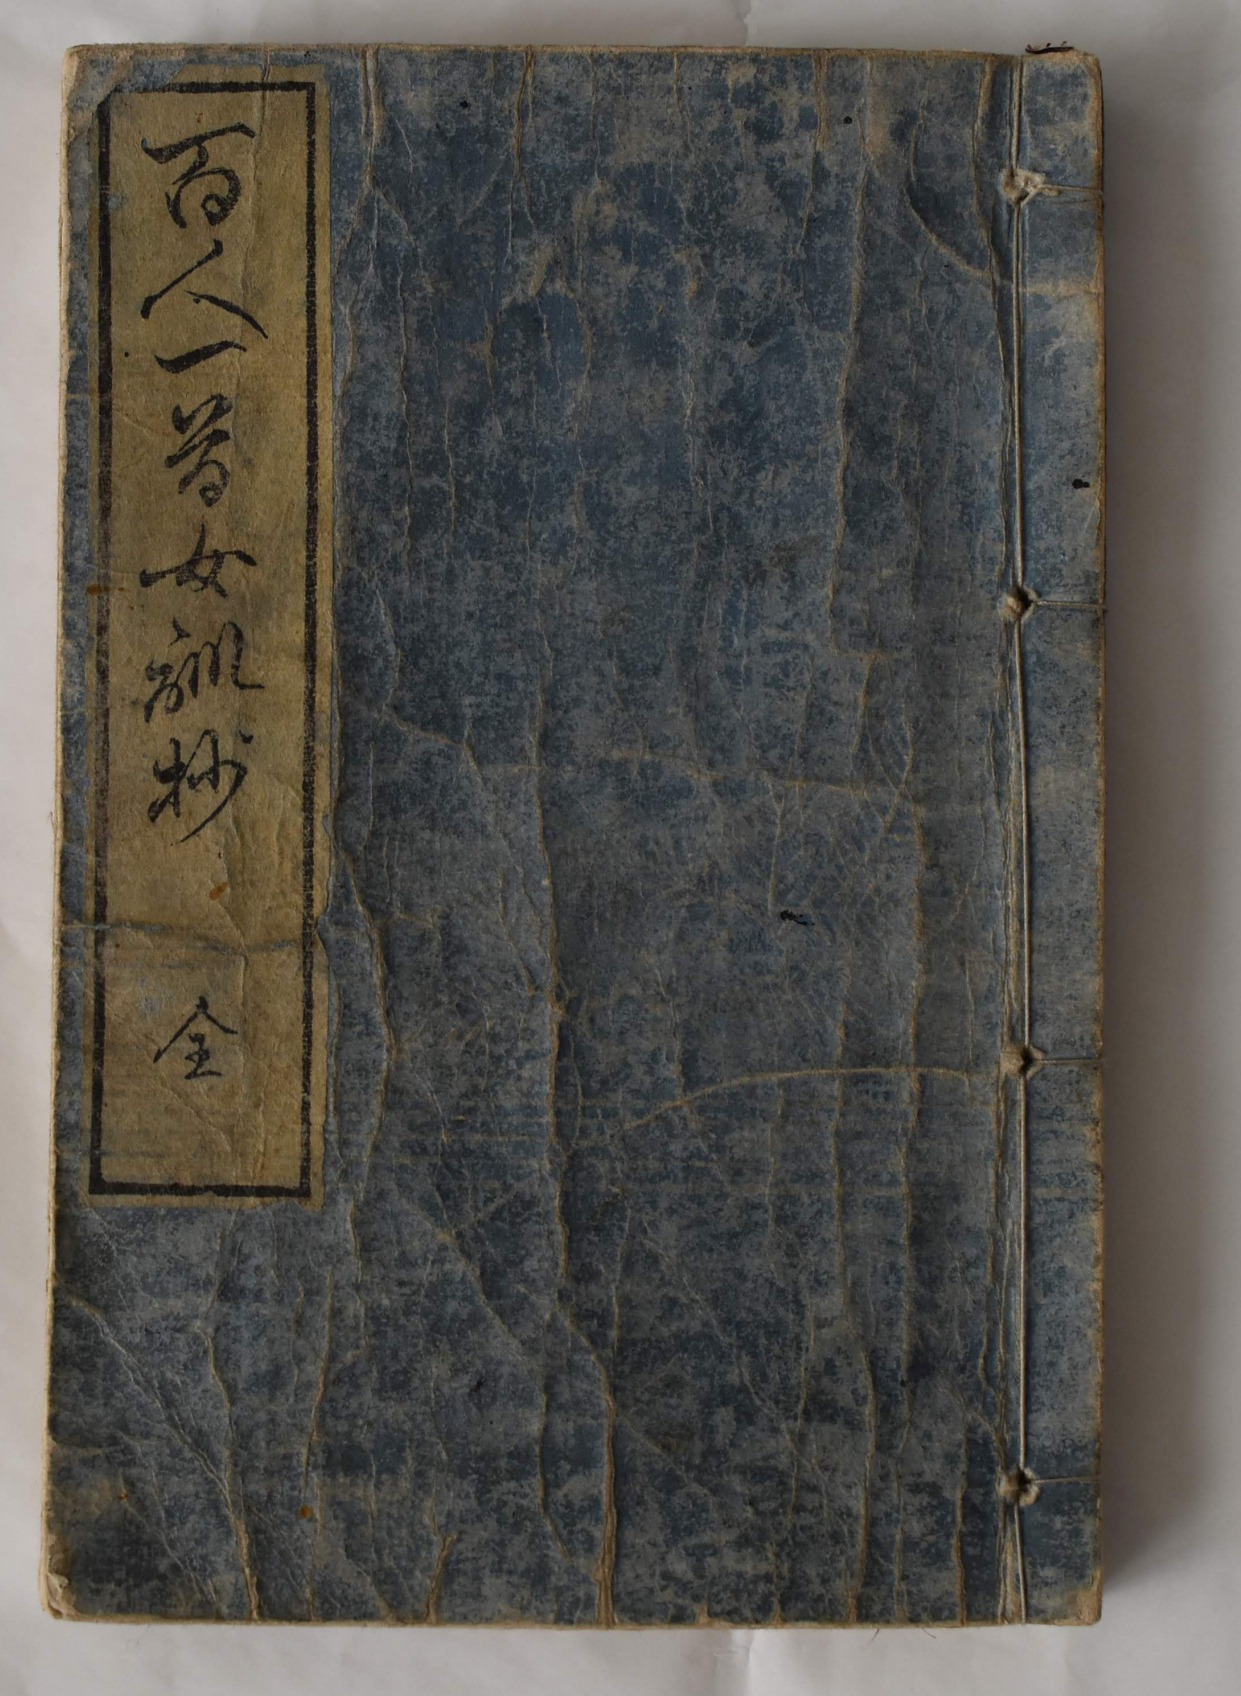 百人一首女訓抄
全